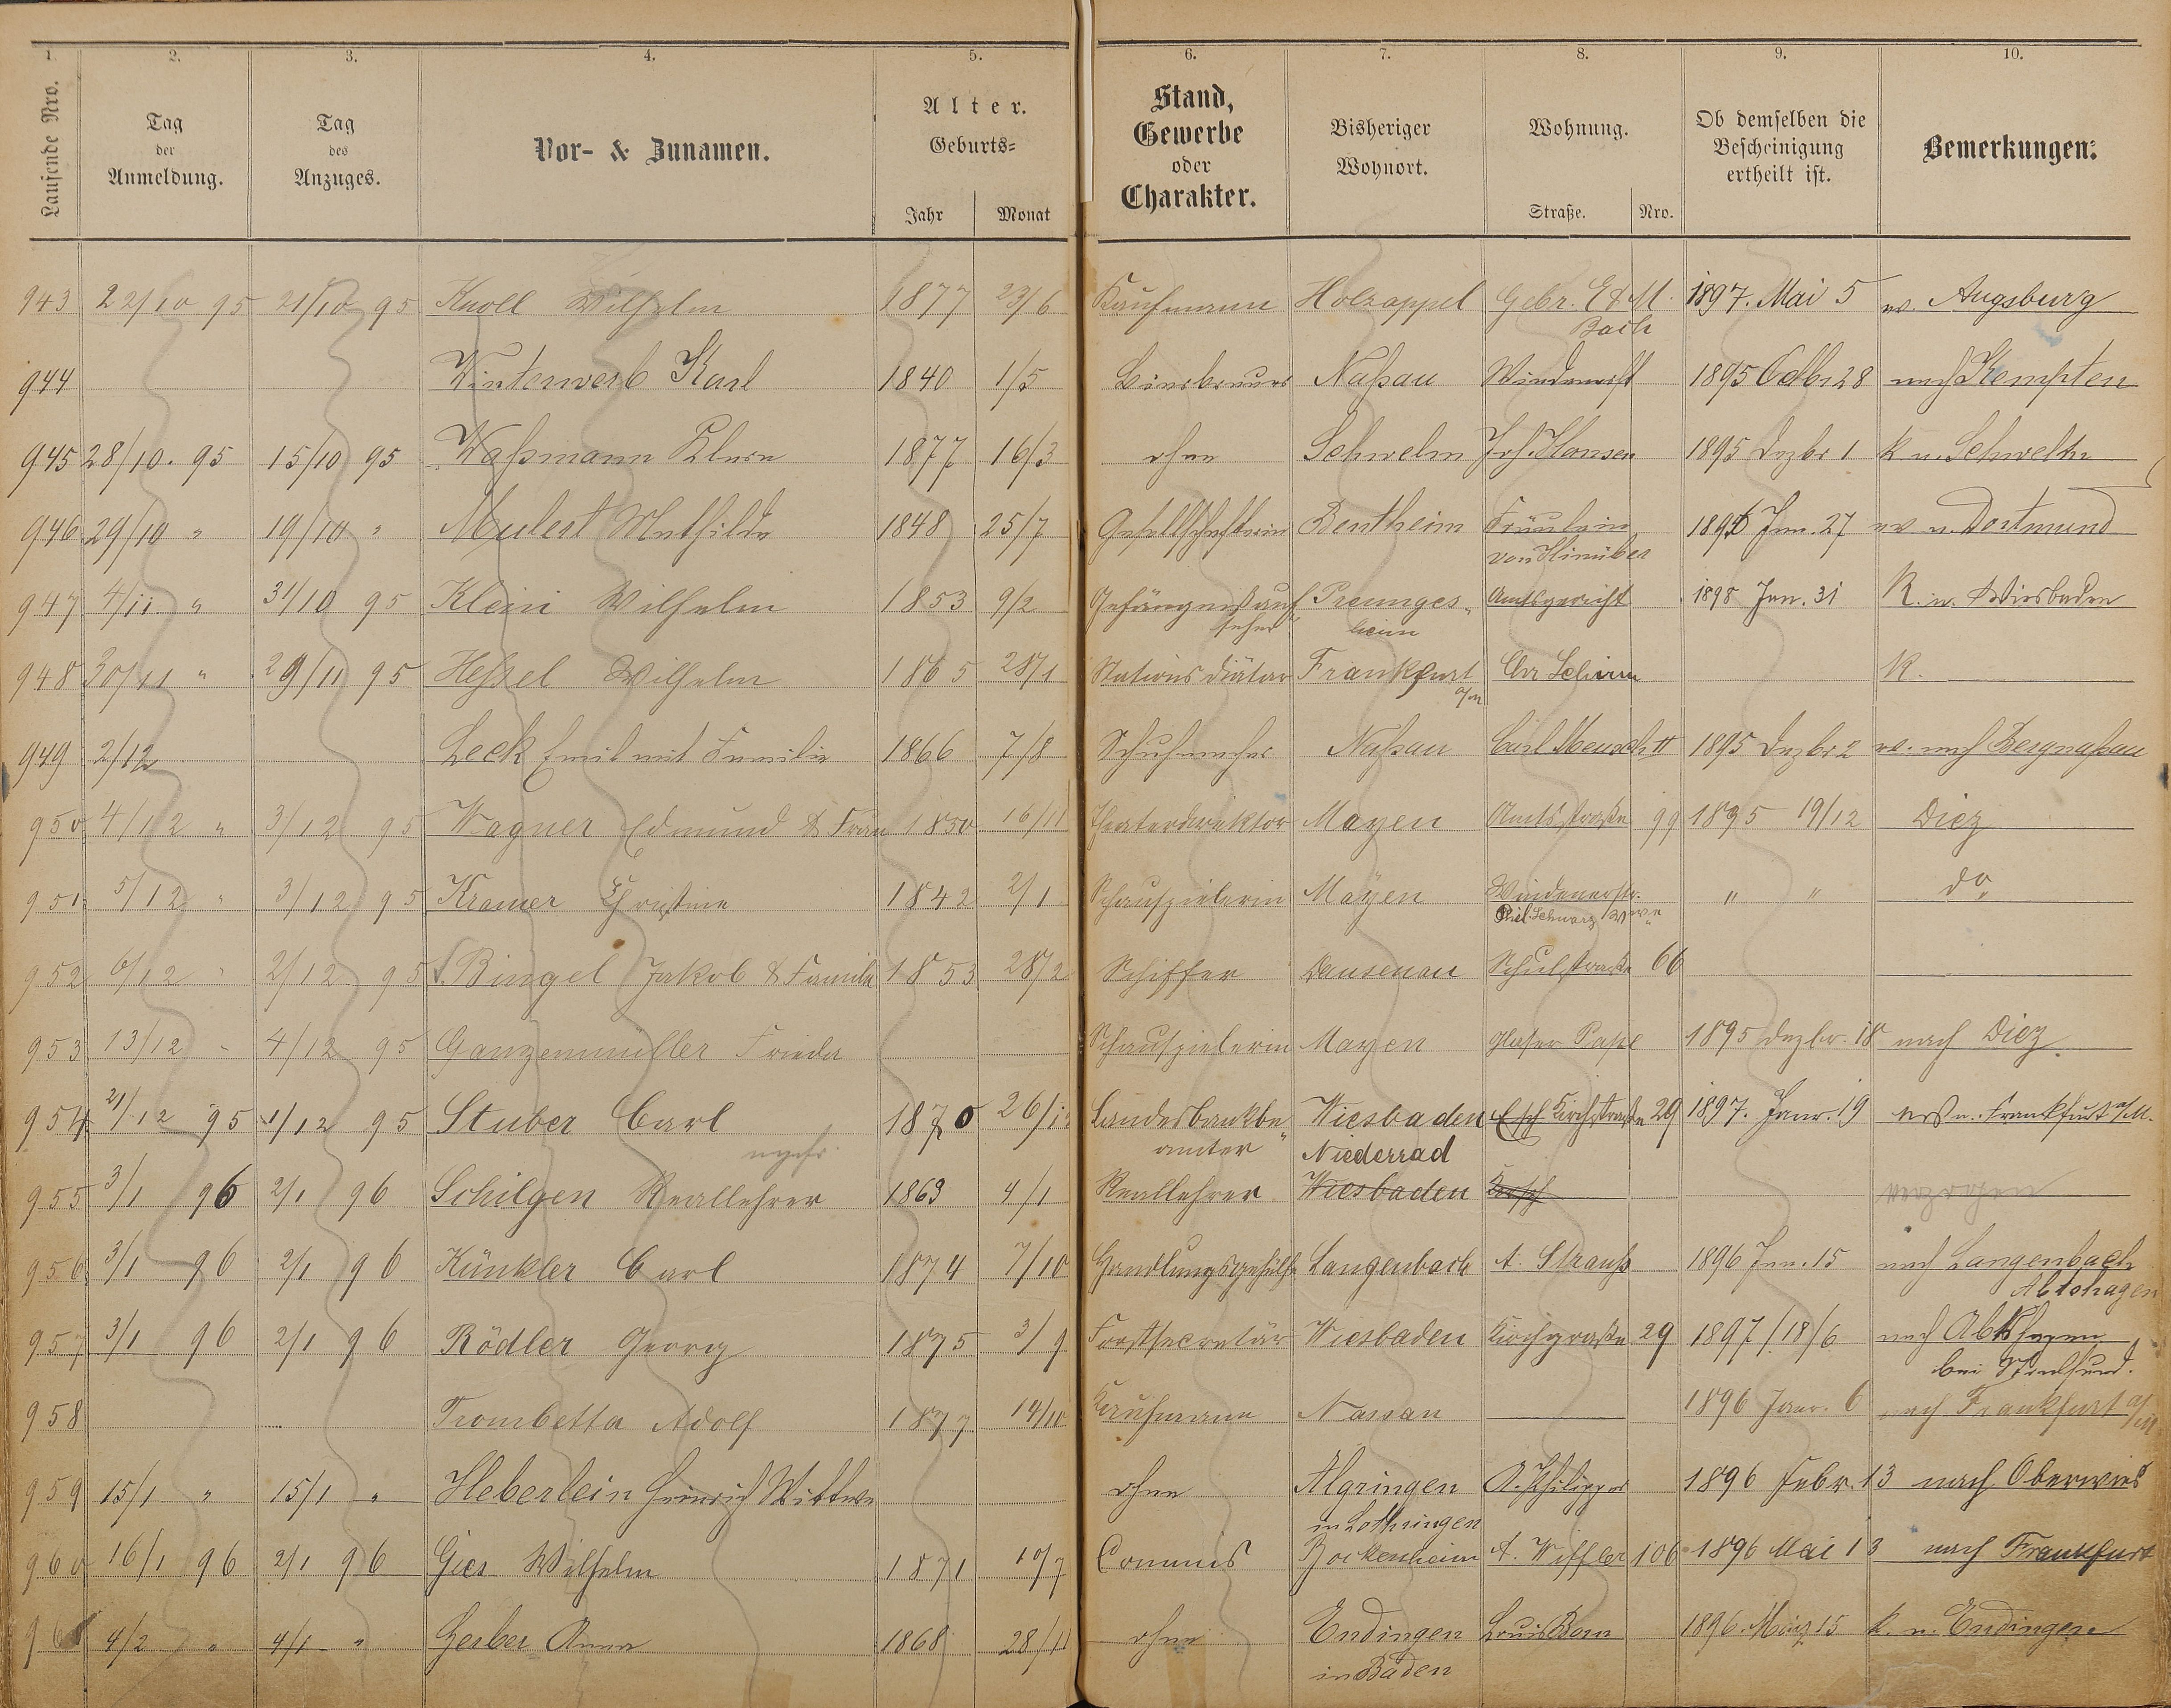 1. 2. 3. 4. 5. 6. 7. 8. 9. 10.
Laufende Nro.
Tag der Anmeldung.
Tag des Anzuges.
Vor- & Zunamen.
Alter.
Geburts=
Jahr Monat
Stand, Gewerbe oder Charakter.
Bisheriger Wohnort.
Wohnung.
Straße. Nro.
Ob demselben die Bescheinigung ertheilt ist.
Bemerkungen.
943 22/10 95 21/10 95 Knoll Wilhelm 1877 23/6 Kaufmann Holzappel Gebr. E & M. 1897. Mai 5 Augsburg
Bach
944 Winterwerb Karl 1840 1/5 Bierbrauer Naßau 1895 Octbr 28 nach Kempten
945 28/10. 95 15/10 95 Waßmann Klara 1877 16/3 ohne Schwelm Jos. Hansen 1895 Dezbr 1 k n. Schwelm
946 29/10 " 19/10 " Mulert Mathilde 1848 25/7 Gesellschafterin Bentheim Fräulein 1896 Jan. 27 n. Dortmund
von Hinüber
947 4/11 " 31/10 95 Klein Wilhelm 1853 9/2 Gefängnißauf Preunges- Amtsgericht 1898 Jan. 31 K. n. Wiesbaden
seher heim
948 30/11 " 29/11 95 Heßel Wilhelm 1865 28/1 Stations Diätar Frankfurt Chr Schirm K.
a/m
949 2/12 Leck Emil mit Familie 1866 7/8 Schuhmacher Naßau Carl Meuschtt 1895 Dezbr 2 nach Bergnaßau
950 4/12 " 3/12 95 Wagner Edmund & Frau 1850 16/11 Theaterdirektor Mayen Amtsstraße 99 1895 19/12 Diez
951 5/12 " 3/12 95 Kramer Christine 1842 2/1 Schauspielerin Mayen Windenerstr. " " do
Phil. Schwarz Wwe
952 6/12 " 2/12 95 Bingel Jakob & Familie 1853 28/2 Schiffer Dausenau Schulstraße 66
953 13/12 " 4/12 95 Ganzenmüller Frieda Schauspielerin Mayen Glaser 1895 Dezbr. 18 nach Diez
954 21/12 95 1/12 95 Stuber Carl 1870 26/1 Landesbankbe Wiesbaden Kirchstraße 29 1897. Janr. 19 n. Frankfurt a/M.
amter Niederrad
955 3/1 96 2/1 96 Schilgen Reallehrer 1863 4/1 Reallehrer Wiesbaden verzogen
956 3/1 96 2/1 96 Künkler Carl 1874 7/10 Handlungsgehülfe Langenbach A. Strauß 1896 Jan. 15 nach Langenbach
Abtshagen
957 3/1 96 2/1 96 Rödler Georg 1875 3/9 Forstsecretär Wiesbaden Kirchgraße 29 1897/18/6 nach Abtshagen
bei Stralsund.
958 Trombetta Adolf 1877 14/10 Kaufmann Nassau 1896 Janr. 6 nach Frankfurt a/M
959 15/1 " 15/1 " Heberlein Heinrich Wittwe ohne Algringen A. Philipps 1896 Febr. 13 nach Oberwies
in Lothringen
960 16/1 96 2/1 96 Gies Wilhelm 1871 10/7 Commis Bockenheim A. Wiffler 106 1896 Mai 13 nach Frankfurt
961 4/2 " 4/1 " Gerber Anna 1868 28/11 ohne Endingen Louis Born 1896. März 15 k. n. Endingen
in Baden